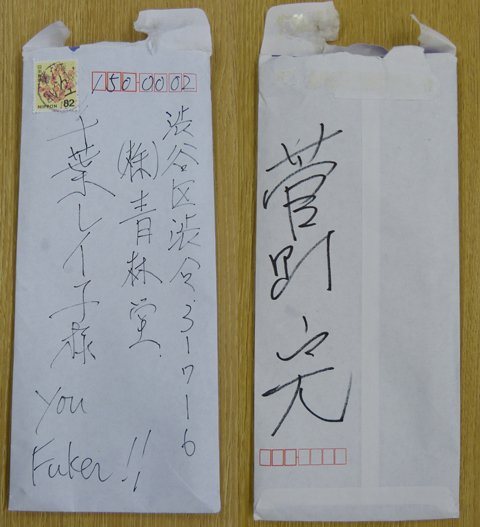 NIPPON 82
150-0002
渋谷区渋谷3-7-6
(株)青林堂
千葉レイ子様
You
Fuker!!
菅野 完